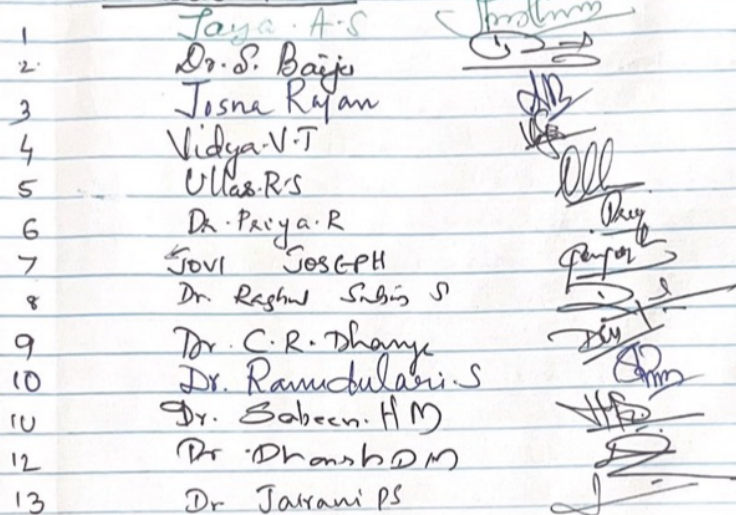 1 Jaya. A.S
2. Dr. S. Baiju
3 Josna Rajan
4 Vidya.V.J
5 Ullas.R.S
6 Dr. Priya.R
7 JOVI JOSEPH
8 Dr. Raghul Subin S
9 Dr. C.R. Dhanya
10 Dr. Ramdulari.S
10 Dr. Sabeen. H M
12 Dr. Dhanesh DM
13 Dr Jairani PS